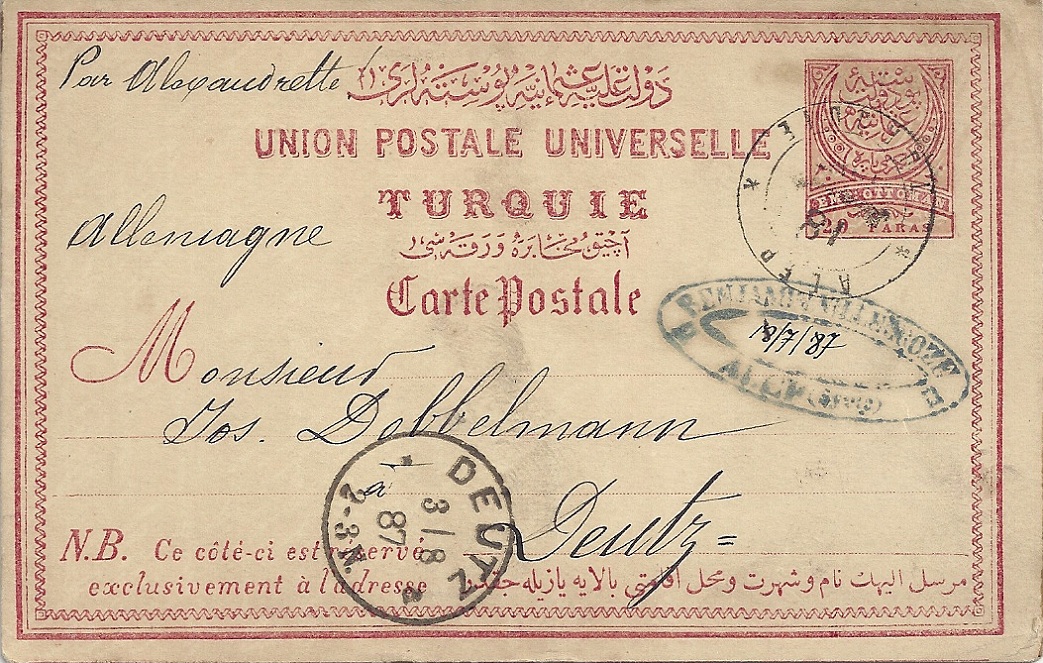 Par Alexandrette
دولت عليه عثمانيه پوسته لرى
UNION POSTALE UNIVERSELLE
TURQUIE
EMP. OTTOMAN
20 PARAS
ALEP
Allemagne
آچيق مخابره ورقه سى
Carte Postale
BENJAMIN
18/7/87
ALEP (Syrie)
Monsieur
Jos. Debbelmann
à
Deutz =
DEUTZ
3/8
87
2-3N.
N.B. Ce côté-ci est réservé
exclusivement à l'adresse
مرسل اليهك نام و شهرت و محل اقامتى بالايه يازيله جقدر